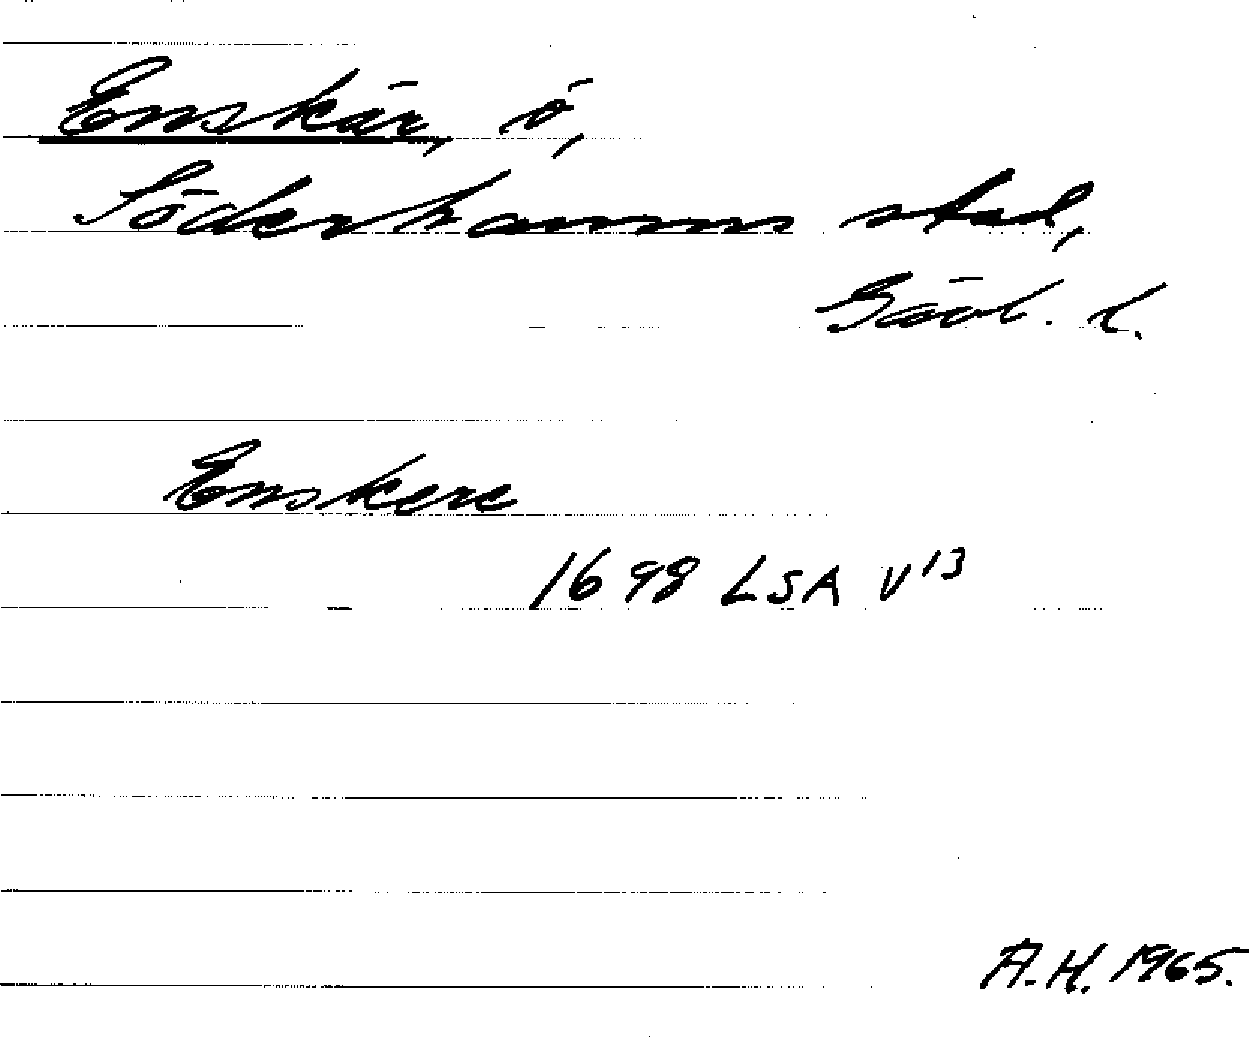 Enskär, ö,
Söderhamns stad,
Gävl. l.
Enskere
1698 LSA V 13
A.H. 1965.